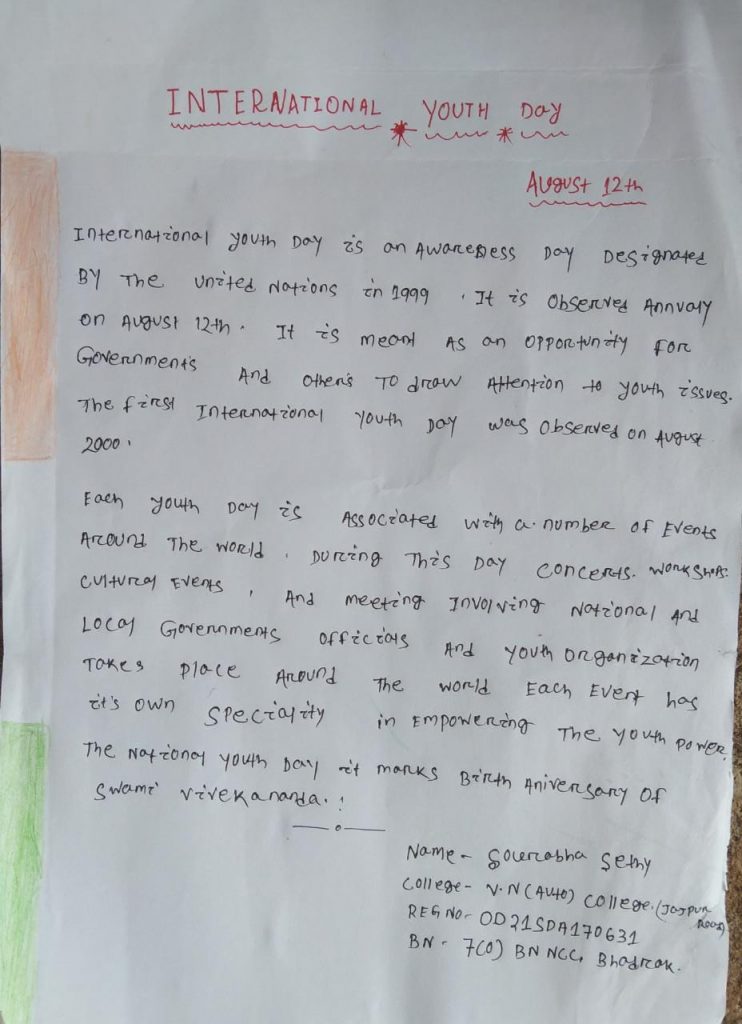 INTERNATIONAL YOUTH Day
August 12th
International youth Day is an Awareness Day Designated
By The united Nations in 1999. It is Observed Annualy
on August 12th. It is meant As an opportunity For
Governments And other's To draw Attention to youth issues.
The first International Youth Day was observed on August
2000.
Each youth Day is Associated with a number of Events
Around The world. During This Day concerts. workshops.
cultural Events, And meeting Involving National And
Local Governments officials And youth organization
Takes place Around The world Each Event has
it's own speciality in Empowering The youth power.
The National youth Day it marks Birth Aniversary Of
Swami vivekananda. !
Name - Sourabha Sethy
College - V.N (Auto) College. (Jajpur
Road)
REG No - OD21SDA170631
BN - 7(O) BN NCC, Bhadrak.